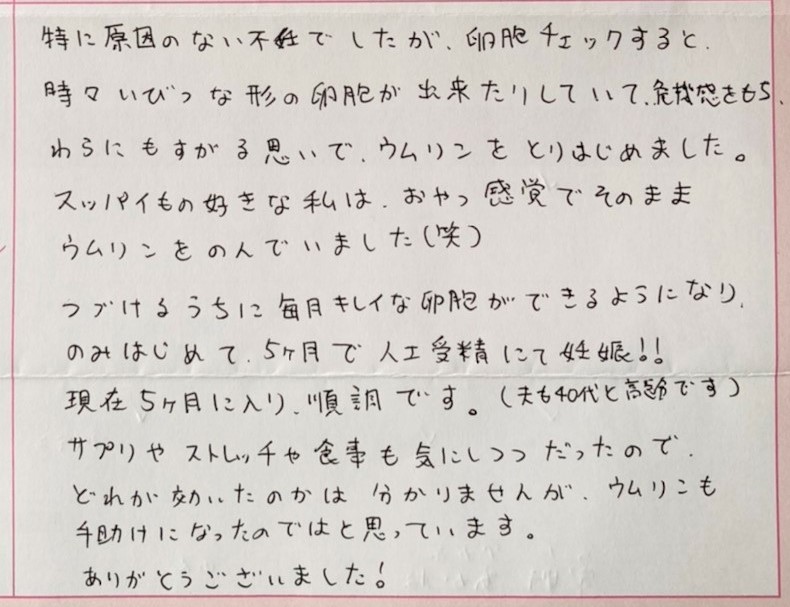 特に原因のない不妊でしたが、卵胞チェックすると、
時々いびつな形の卵胞が出来たりしていて、危機感をもち、
わらにもすがる思いで、ウムリンをとりはじめました。
スッパイもの好きな私は、おやつ感覚でそのまま
ウムリンをのんでいました(笑)
つづけるうちに毎月キレイな卵胞ができるようになり、
のみはじめて、5ヶ月で人工受精にて妊娠!!
現在5ヶ月に入り、順調です。(夫も40代と高齢です)
サプリやストレッチや食事も気にしつつだったので、
どれが効いたのかは分かりませんが、ウムリンも
手助けになったのではと思っています。
ありがとうございました!